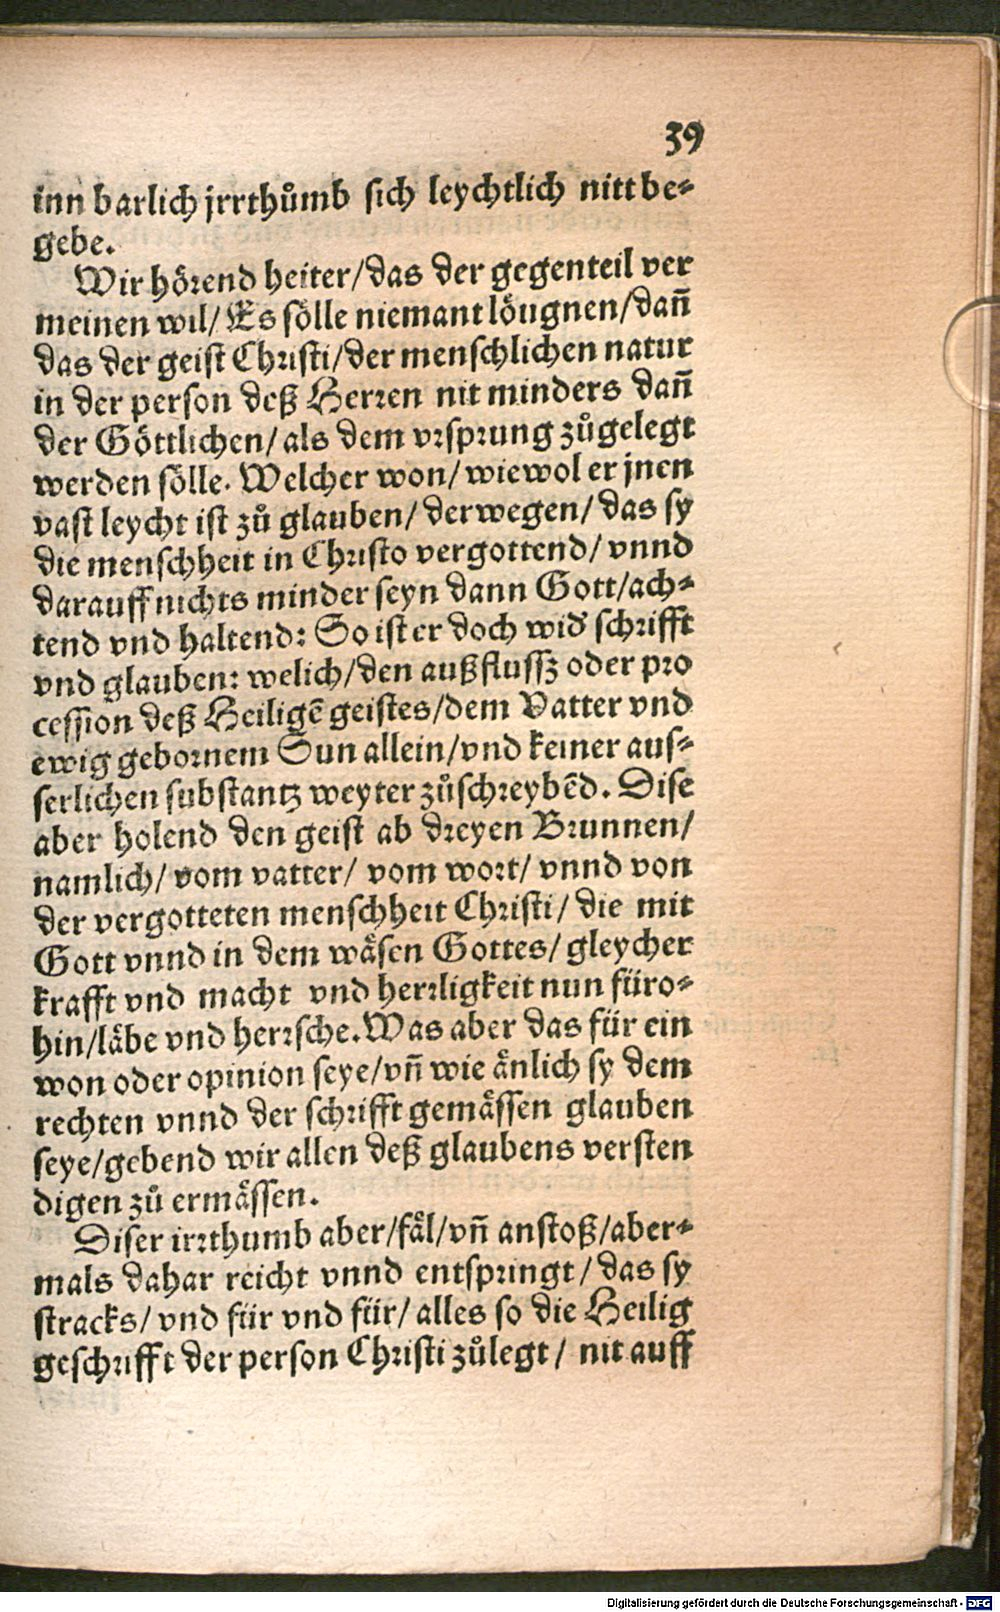 39
inn barlich jrrthuͦmb sich leychtlich nitt be⸗
gebe.
Wir hoͤrend heiter/das der gegenteil ver
meinen wil/ Es soͤlle niemant loͤugnen/dañ
das der geist Christi/der menschlichen natur
in der person deß Herren nit minders dañ
der Goͤttlichen/ als dem vrsprung zuͦgelegt
werden soͤlle. Welcher won/ wiewol er jnen
vast leycht ist zuͦ glauben/ derwegen/ das sy
die menschheit in Christo vergottend/ vnnd
darauff nichts minder seyn dann Gott/ach⸗
tend vnd haltend: So ist er doch wid' schrifft
vnd glauben: welich/den außflussz oder pro
cession deß Heiligẽ geistes/dem Vatter vnd
ewig gebornem Sun allein/vnd keiner aus⸗
serlichen substantz weyter zuͦschreybẽd. Dise
aber holend den geist ab dreyen Brunnen/
namlich/ vom vatter/ vom wort/ vnnd von
der vergotteten menschheit Christi/ die mit
Gott vnnd in dem waͤsen Gottes/ gleycher
krafft vnd macht vnd herrligkeit nun fuͤro⸗
hin/laͤbe vnd herrsche. Was aber das fuͤr ein
won oder opinion seye/vñ wie aͤnlich sy dem
rechten vnnd der schrifft gemaͤssen glauben
seye/gebend wir allen deß glaubens versten
digen zuͦ ermaͤssen.
Diser irrthumb aber/faͤl/vñ anstoß/aber⸗
mals dahar reicht vnnd entspringt/ das sy
stracks/ vnd fuͤr vnd fuͤr/ alles so die Heilig
geschrifft der person Christi zuͦlegt/ nit auff
Digitalisierung gefördert durch die Deutsche Forschungsgemeinschaft - DFG